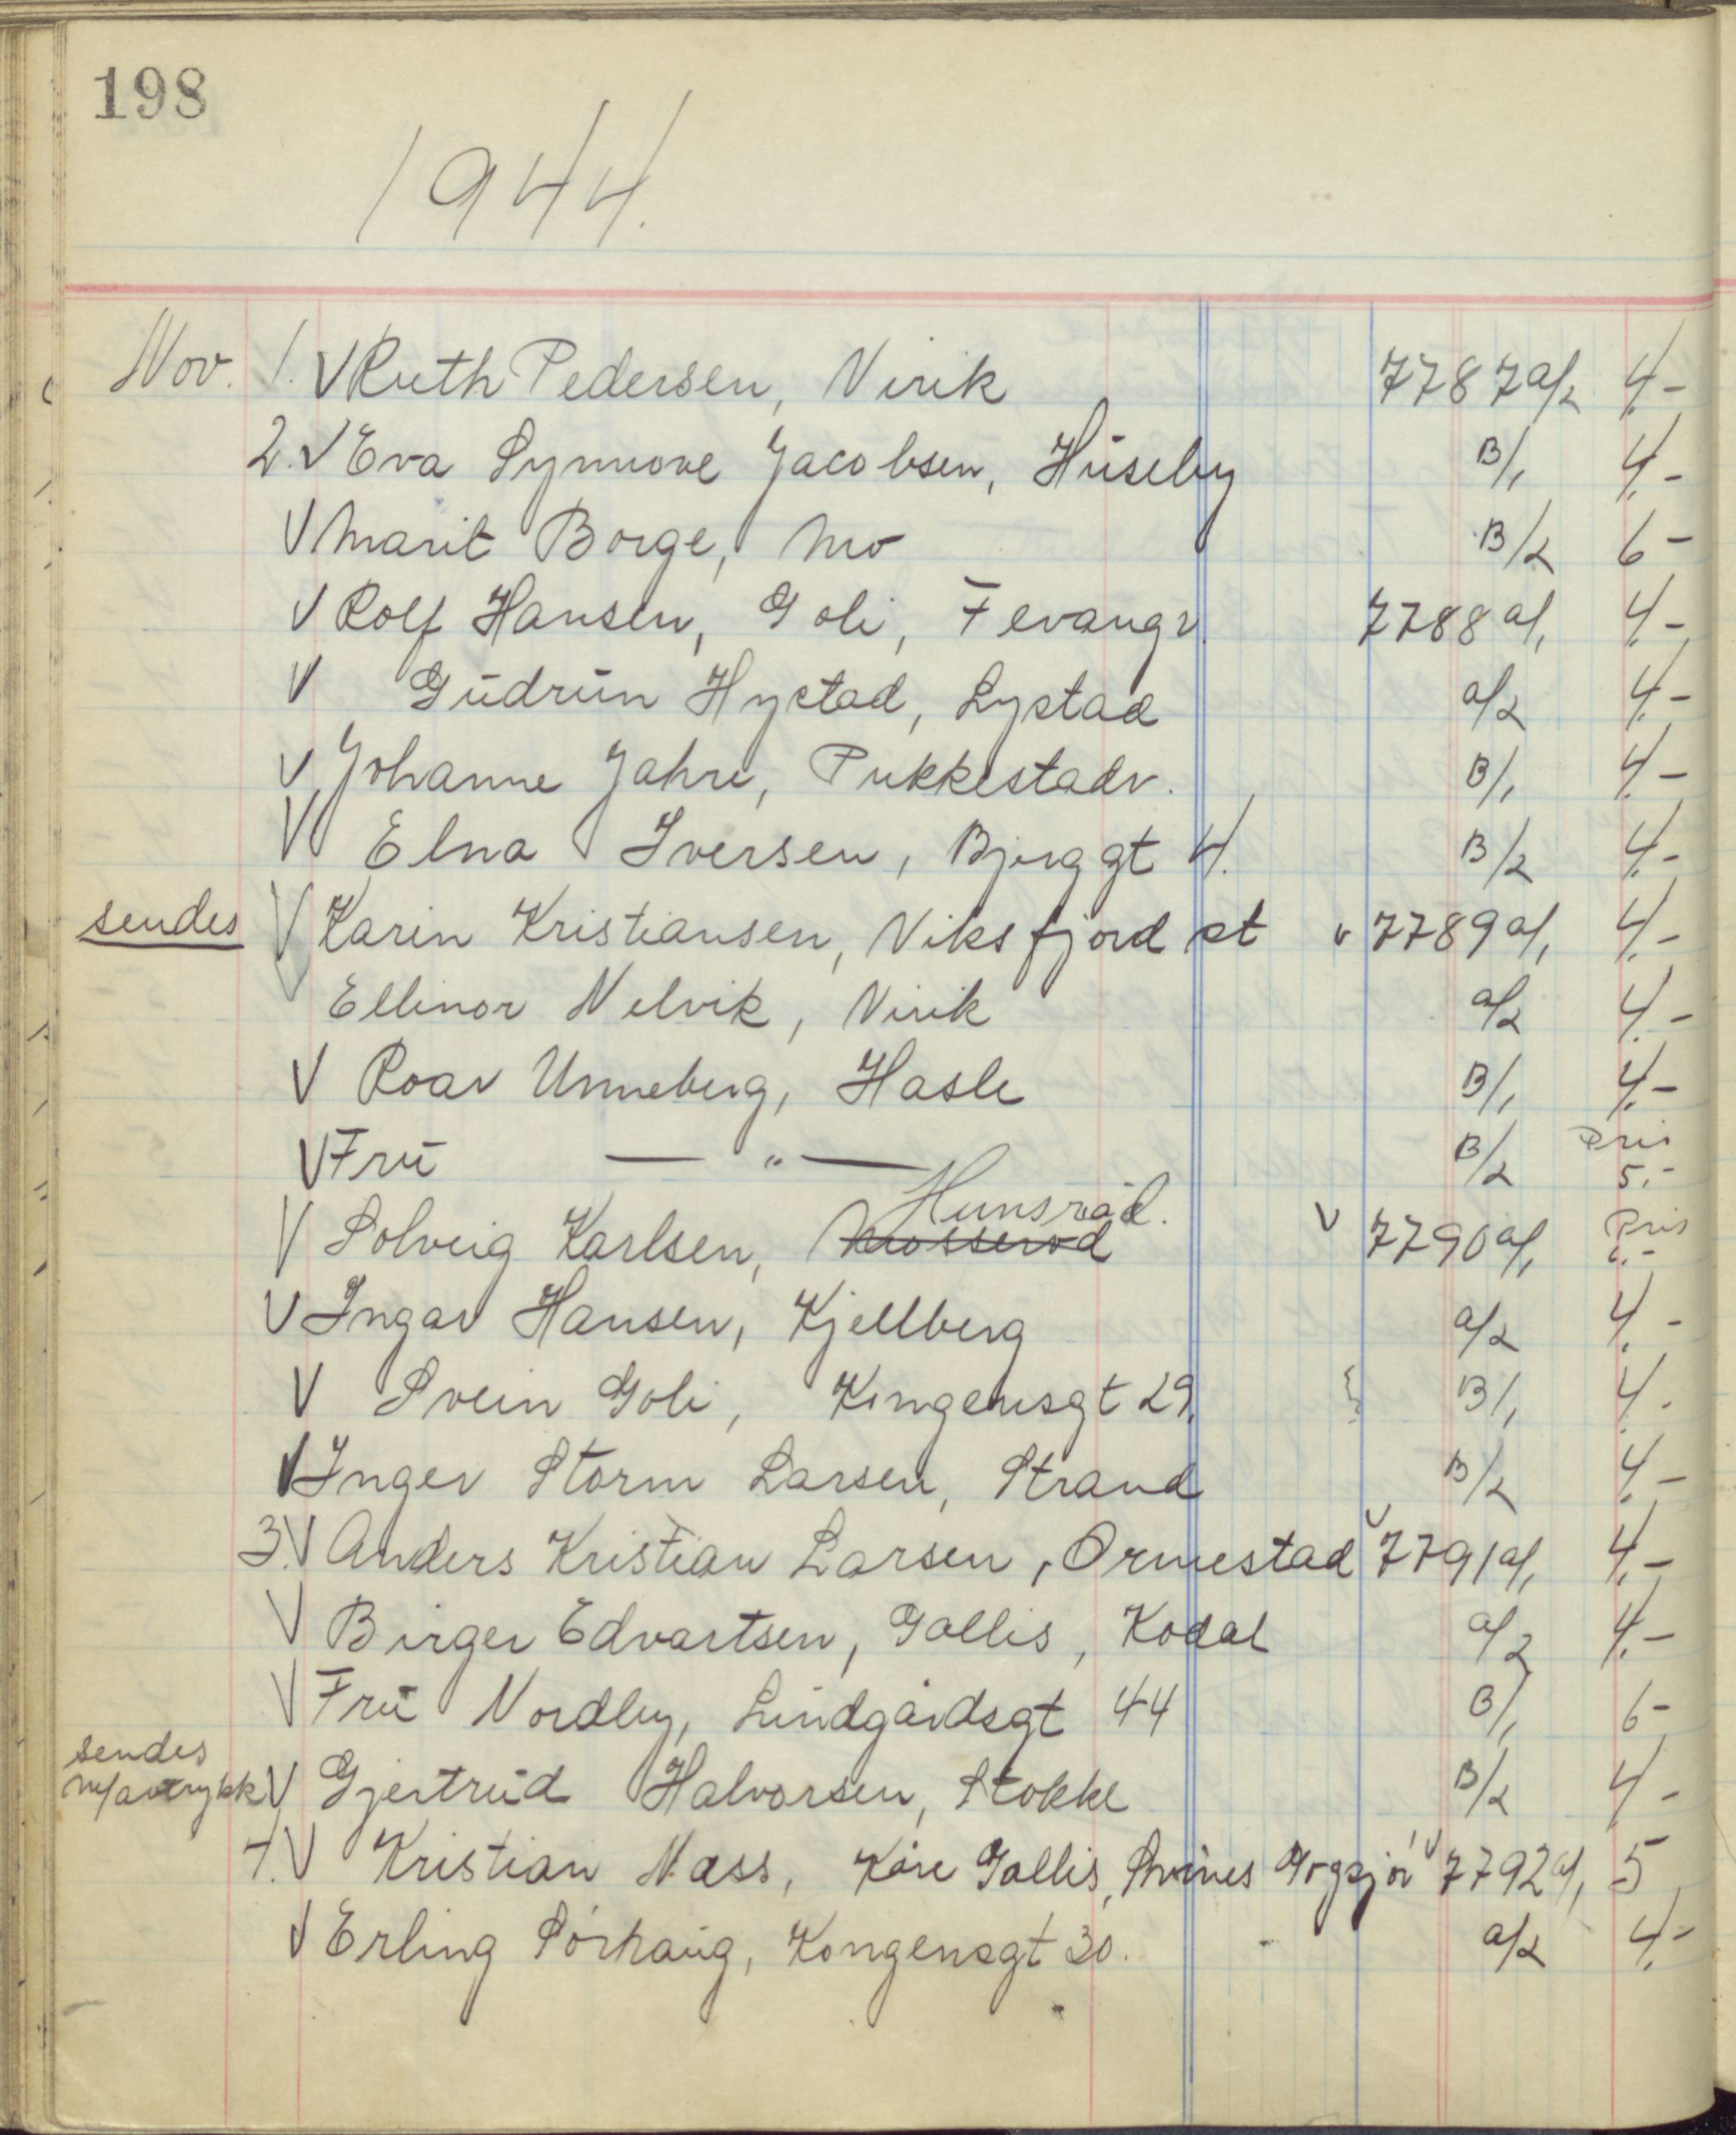 198
1944.
Nov. 1. V Ruth Pedersen, Virik 7787 a/2 4,-
2. V Eva Synnove Jacobsen, Huseby B/1 4,-
V Marit Borge, Mo B/2 6-
V Rolf Hansen, Goli, Fevangv. 7788 a/1 4,-
V Gudrun Hystad, Lystad a/2 4,-
V Johanne Jahre, Pukkestadv. B/1 4,-
V Elna Iversen, Bjerggt 4. B/2 4,-
sendes V Karin Kristiansen, Viksfjord st v 7789 a/1 4,-
Ellinor Nelvik, Virik a/2 4,-
V Roar Unneberg, Hasle B/1 4,-
V Fru — " — B/2 Pris 5,-
Hunsrød.
V Solveig Karlsen, Mosserød V 7790 a/1 Pris 6,-
V Ingar Hansen, Kjellberg a/2 4,-
V Svein Goli, Kongensgt 29. B/1 4,-
V Inger Storm Larsen, Strand B/2 4,-
3. V Anders Kristian Larsen, Ormestad v 7791 a/1 4,-
V Birger Edvartsen, Gallis, Kodal a/2 4,-
V Fru Nordby, Lindgårdsgt 44 B/1 6-
sendes
m/avtrykk V Gjertrud Halvorsen, Stokke B/2 4,-
4. V Kristian Næss, Kåre Gallis, v 7792 a/1 5
V Erling Sörhaug, Kongensgt 30. a/2 4,-